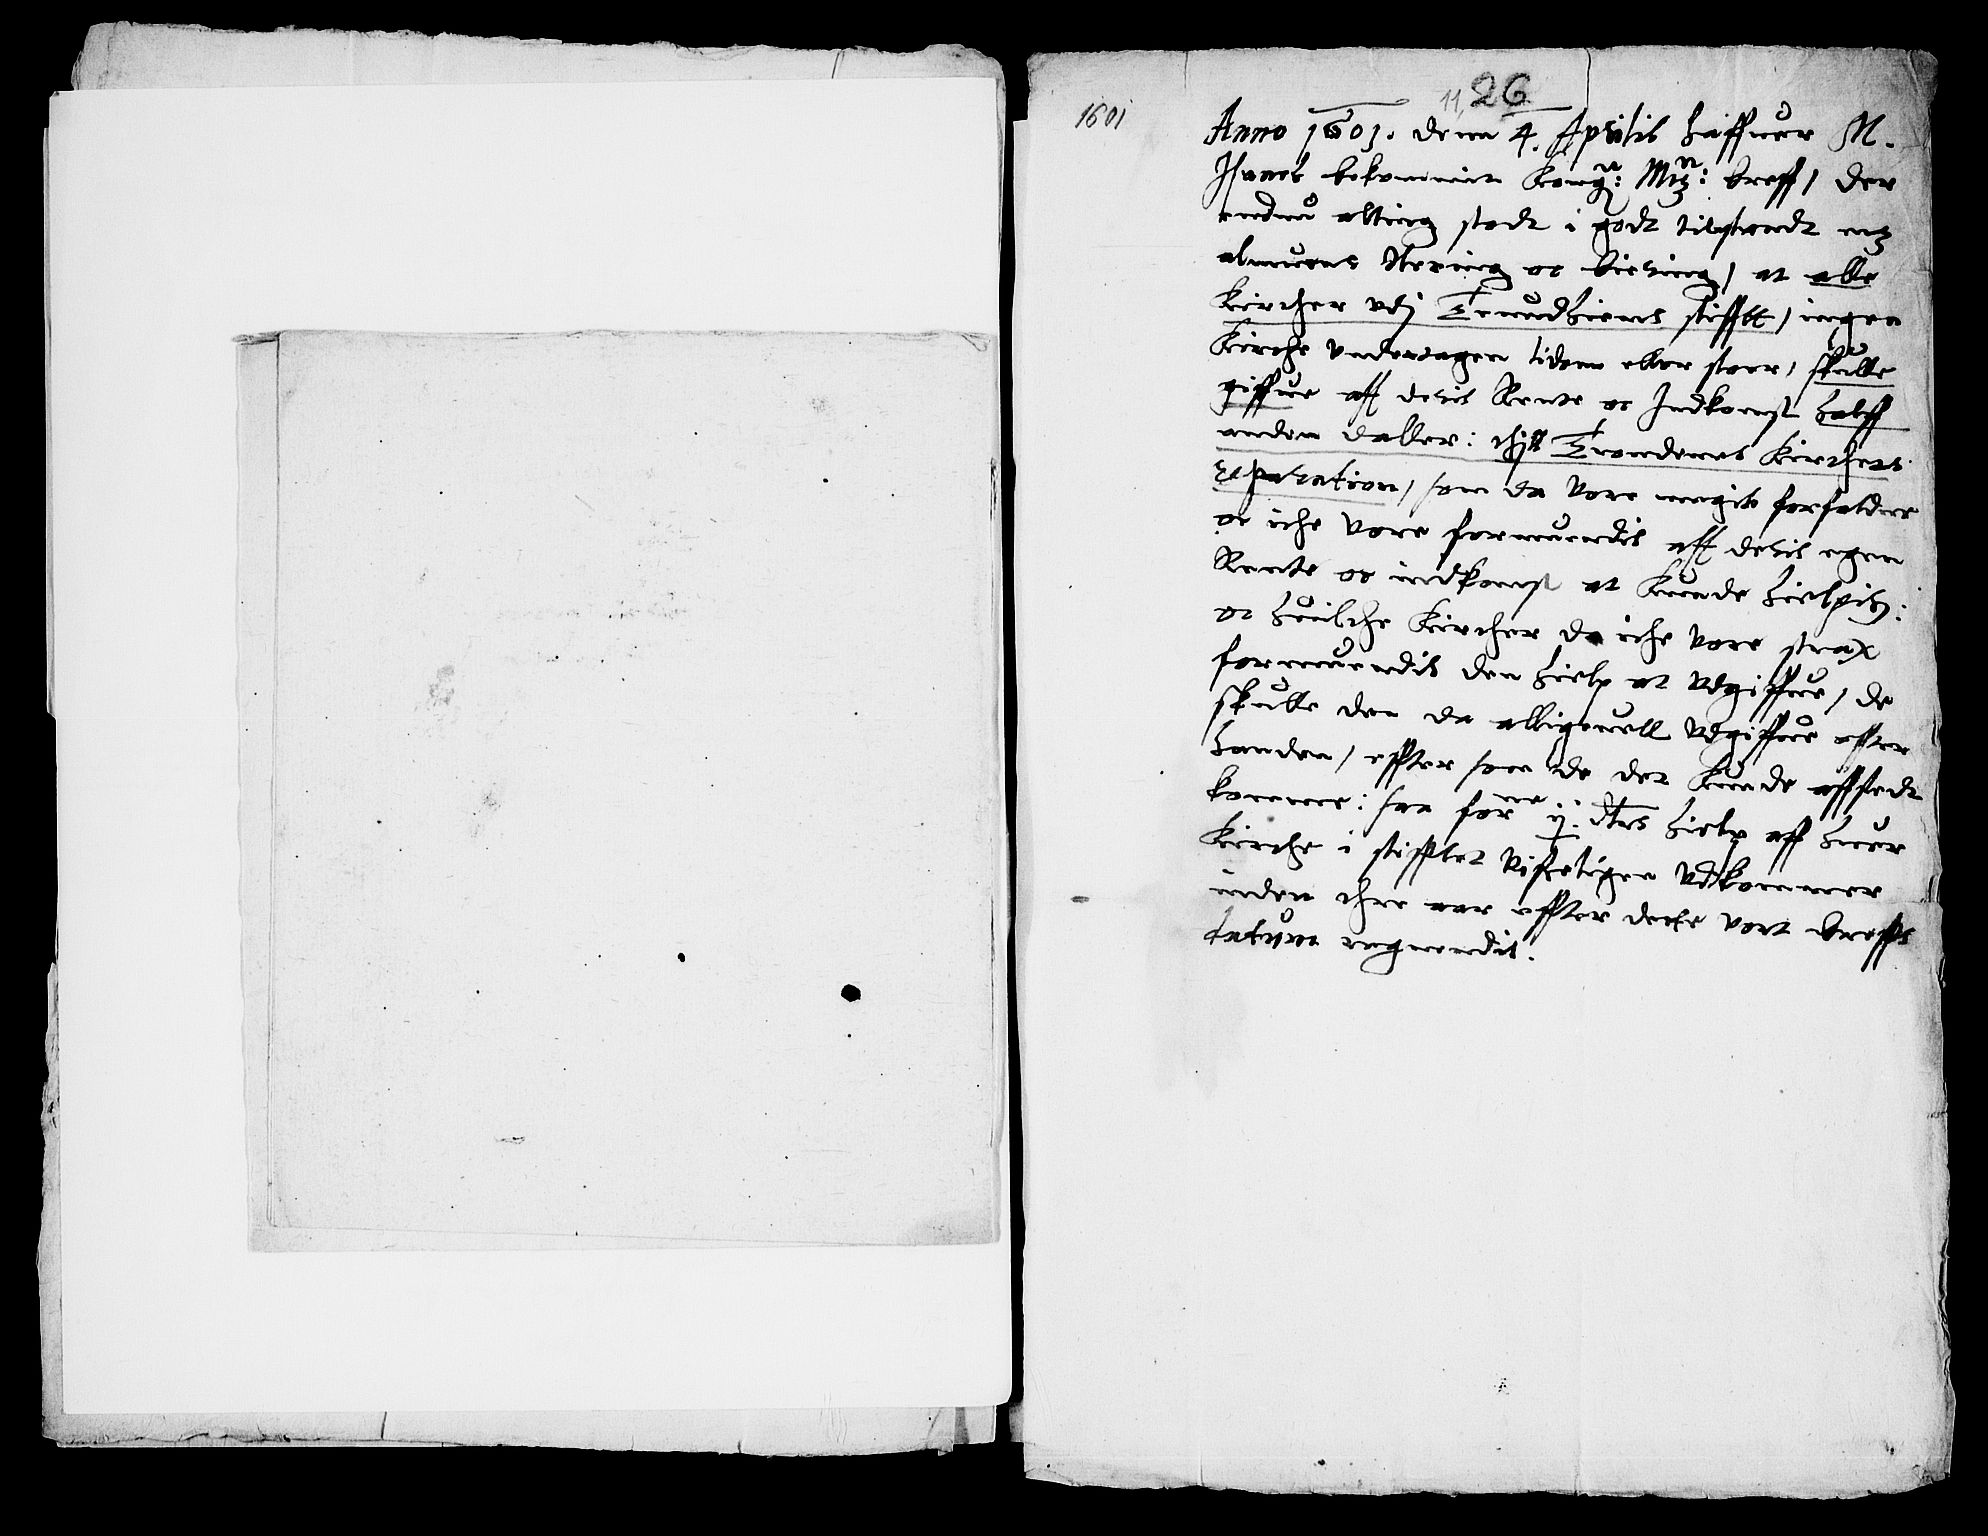 11, 26
1601
Anno 1601. denn 4. Aprilis haffuer M.
Isaach bekommit Kong: Mtz: breff, der
endnu alting stodt i godt tilstandt mz
almuens Nering oc biering, at alle
Kircher vdj Trundhiems stifftt, ingen
Kirche vndertagen tiden eller stoer, skulle
giffue aff deris Rente oc Indkomst halff
anden daller: thill Trondenes Kirchens
reparation, som da vore megit forfalden
oc iche vore formuendis aff deris egen
Rente oc indkomst at kunde hielpis:
oc huilche Kircher da iche vore strax
formuendis den hielp at vdgiffue, de
skulle den da alligeuell vdgiffue effter
handen, effter som de det kunde affsted
komme: saa forne ij. dlrs hielp aff huer
Kirche i stifftet visseligen vdkommer
inden thre aar effter dette vort breffs
datum regnendis.